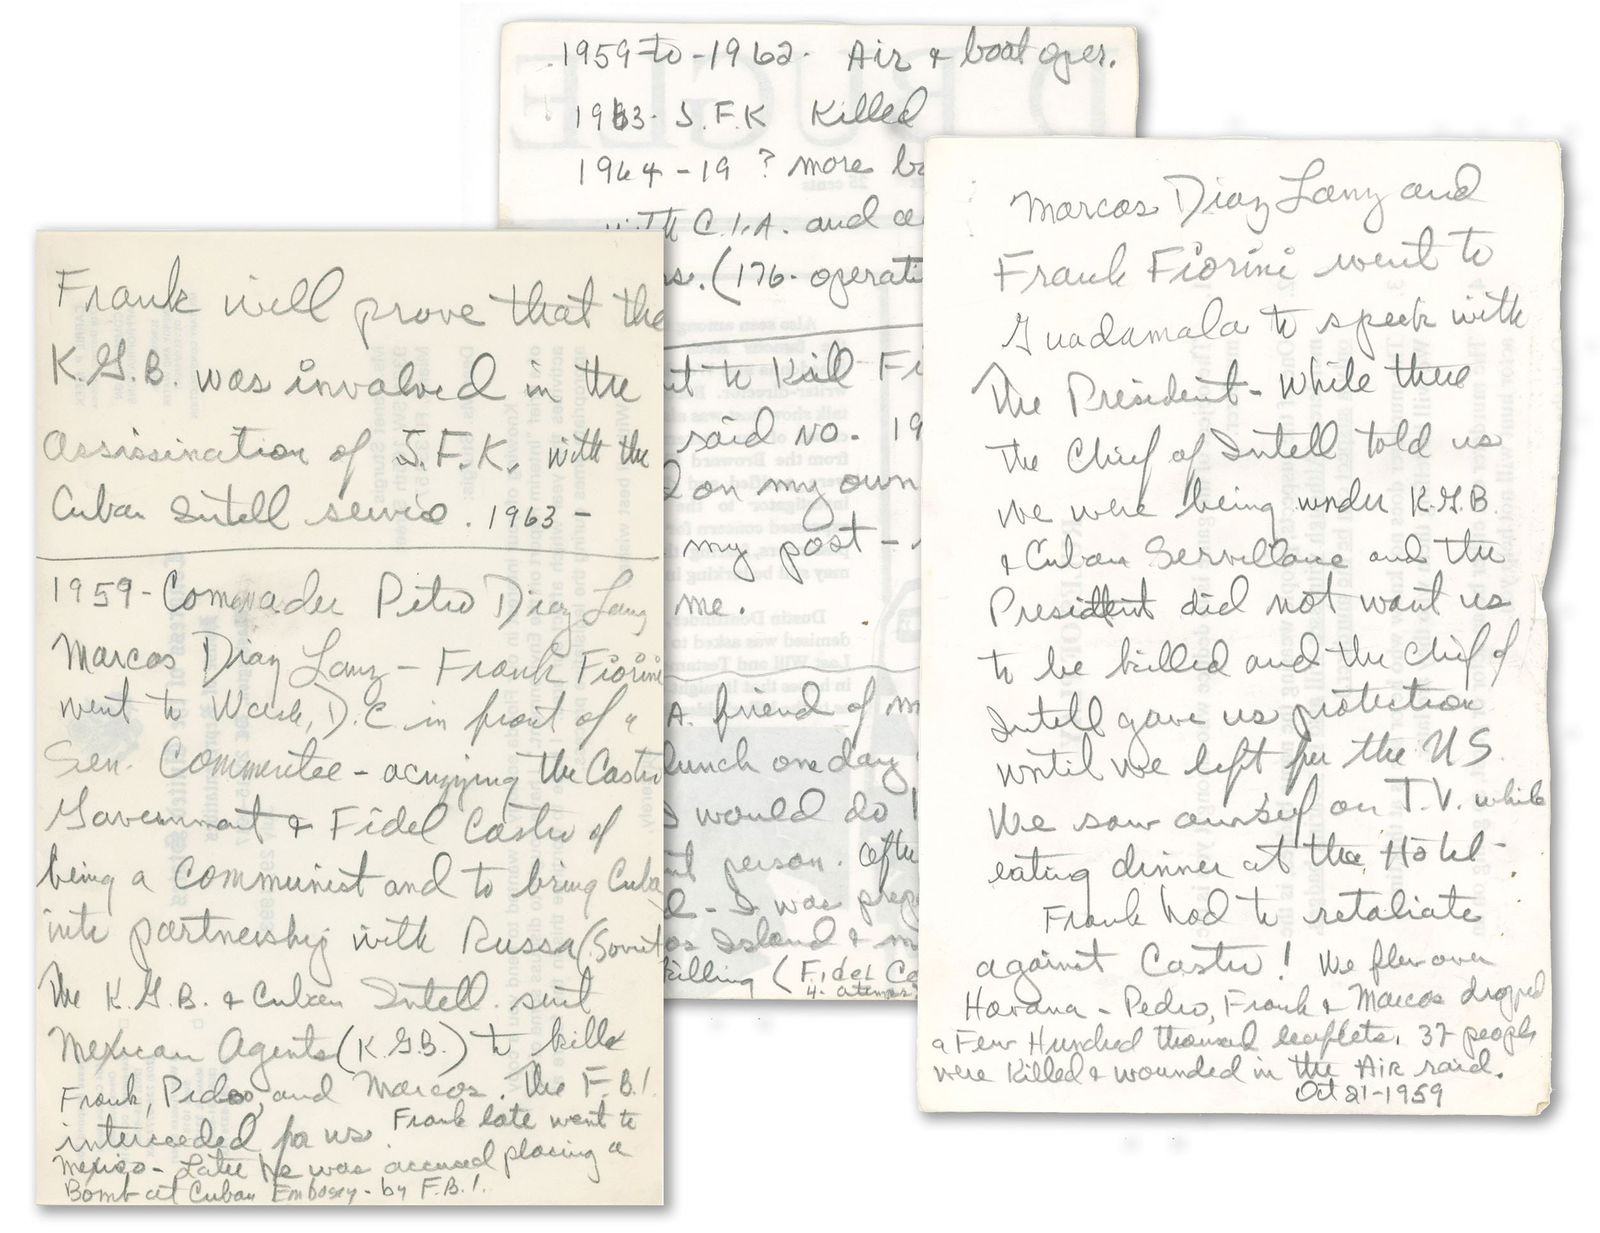 Frank will prove that the
K.G.B. was involved in the
Assissination of J.F.K. with the
Cuban Intell servic. 1963 -
1959 - Comander Petro Diaz Lanz
Marcos Diaz Lanz - Frank Fiorini
went to Wash, D.C. in front of a
Sen. Commeetee - acuzzing the Castro
Government & Fidel Castro of
being a Communist and to bring Cuba
into partnership with Russa (Soviet
The K.G.B. & Cuban Intell. sent
Mexican Agents (K.G.B.) to kill
Frank, Pedro, and Marcos. The F.B.I.
interceeded for us. Frank late went to
Mexico - Later he was accused placing a
Bomb at Cuban Embassy - by F.B.I.
1959 to - 1962. Air & boat oper.
1963. J.F.K Killed
1964 - 19 ? more
with C.I.A. and
(176. operati
to Kill Fi
said no. 19
on my own
my post -
me.
A. friend of m
lunch one day
I would do
person. after
I was prep
Island & m
killing (Fidel Ca
4. atemps
Marcos Diaz Lanz and
Frank Fiorini went to
Guadamala to speek with
The President - while there
the Chief of Intell told us
we were being under K.G.B.
& Cuban Servellane and the
President did not want us
to be killed and the chief of
Intell gave us protection
until we left for the US.
We saw ourself on T.V. while
eating dinner at the Hotel -
Frank had to retaliate
against Castro! We flew over
Havana - Pedro, Frank & Marcos dropped
a Few Hundred thousand leaflets. 37 people
were Killed & wounded in the Air raid.
Oct 21-1959